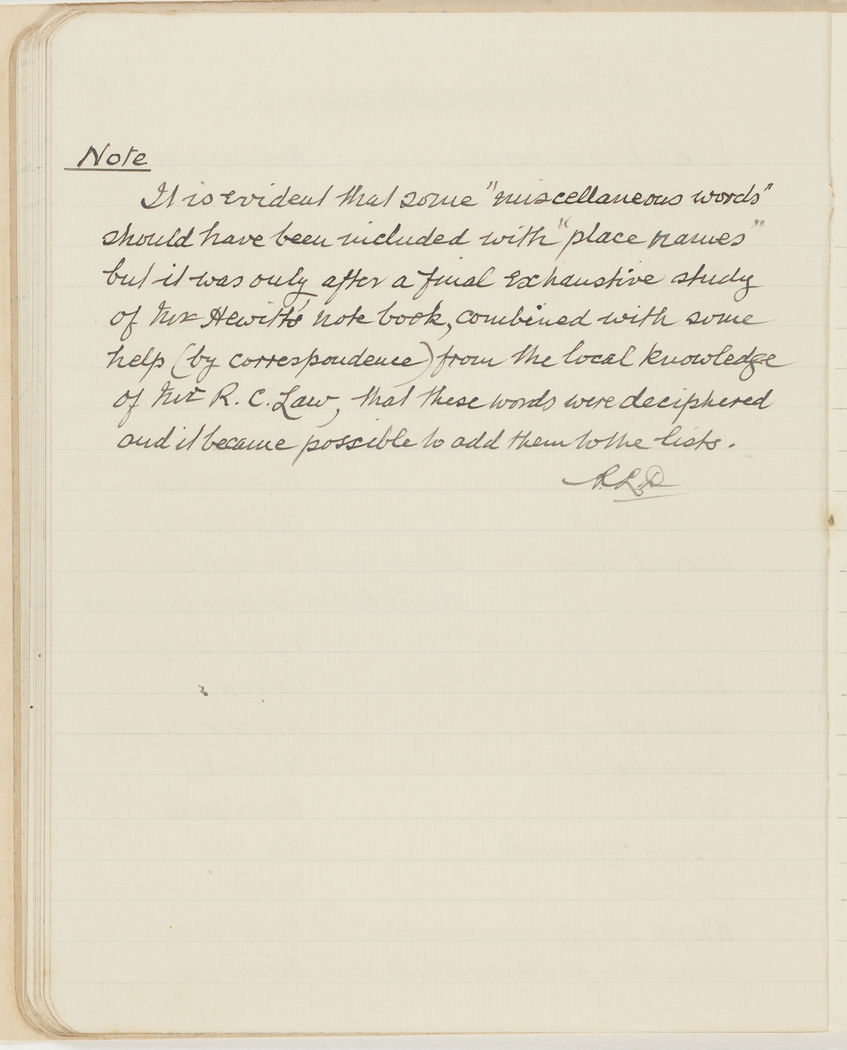 Note
It is evident that some "miscellaneous words"
should have been included with "place names"
but it was only after a final exhaustive study
of Mr Hewitt's note book, combined with some
help (by correspondence) from the local knowledge
of Mr R. C. Law, that these words were deciphered
and it became possible to add them to the lists.